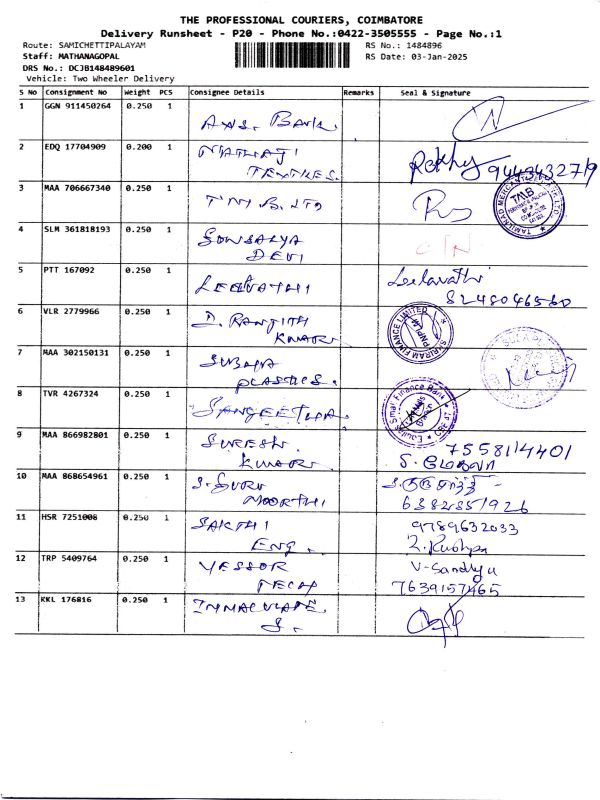 THE PROFESSIONAL COURIERS, COIMBATORE
Delivery Runsheet - P20 - Phone No.:0422-3505555 - Page No.:1
Route: SAMICHETTIPALAYAM
RS No.: 1484896
Staff: MATHANAGOPAL
RS Date: 03-Jan-2025
DRS No.: DCJB148489601
Vehicle: Two Wheeler Delivery
S No Consignment No Weight PCS Consignee Details Remarks Seal & Signature
1 GGN 911450264 0.250 1 AXIS. BANK.
2 EDQ 17704909 0.200 1 NATHAJI
TEXTILES.
3 MAA 706667340 0.250 1 TMB. LTD
TAMILNAD MERCANTILE
TMB
4 SLM 361818193 0.250 1 SOWSALYA
DEVI
5 PTT 167092 0.250 1 LEELVATHI Leelavathi
8248046560
6 VLR 2779966 0.250 1 D. RANJITH
KUMAR
SHRIRAM FINANCE LIMITED
7 MAA 302150131 0.250 1 SUBAYA
PLASTICS.
8 TVR 4267324 0.250 1 SANGEETHA.
Equitas Small Finance Bank
9 MAA 866982801 0.250 1 SURESH
KUMAR
7558114401
10 MAA 868654961 0.250 1 S. GURU
MOORTHI
6382851926
11 HSR 7251006 0.250 1 SAKTHI
ENG.
9789632033
12 TRP 5409764 0.250 1 YESSOR
TECH
V-Sandhya
7639157465
13 KKL 176816 0.250 1 IMMACULATE.
S.